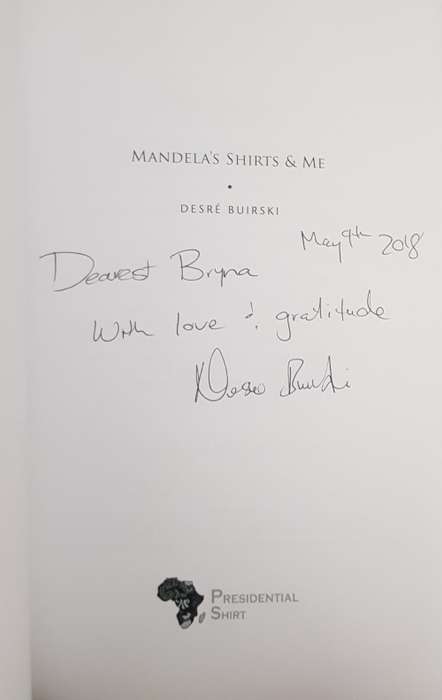 MANDELA'S SHIRTS & ME
•
DESRÉ BUIRSKI
May 9th 2018
Dearest Bryna
With love & gratitude
Desré Buirski
PRESIDENTIAL
SHIRT